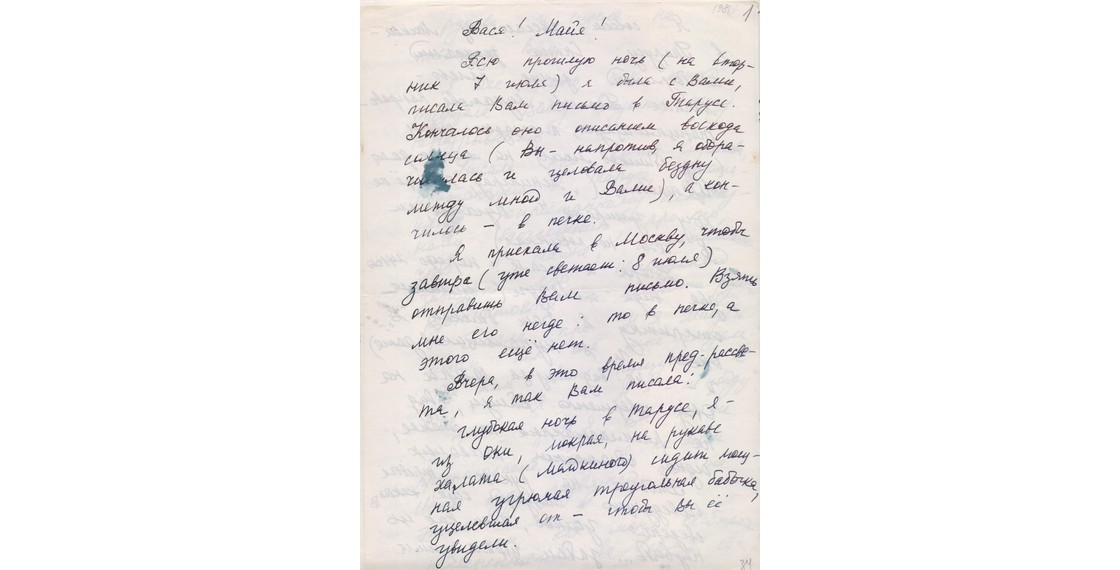 1981 1
Вася! Майя!
Всю прошлую ночь (на втор-
ник 7 июля) я была с Вами,
писала Вам письмо в Тарусе.
Кончалось оно описанием восхода
солнца (Вы - напротив, я обора-
чивалась и целовала бездну
между мной и Вами), а кон-
чилось - в печке.
Я приехала в Москву, чтобы
завтра (уже светает: 8 июля)
отправить Вам письмо. Взять
мне его негде: то в печке, а
этого ещё нет.
Вчера, в это время пред-рассве-
та, я так Вам писала:
глубокая ночь в Тарусе, я -
из Оки, мокрая, на рукаве
халата (Майкиного) сидит
ная угрюмая треугольная бабочка,
уцелевшая от - чтобы Вы её
увидели.
84